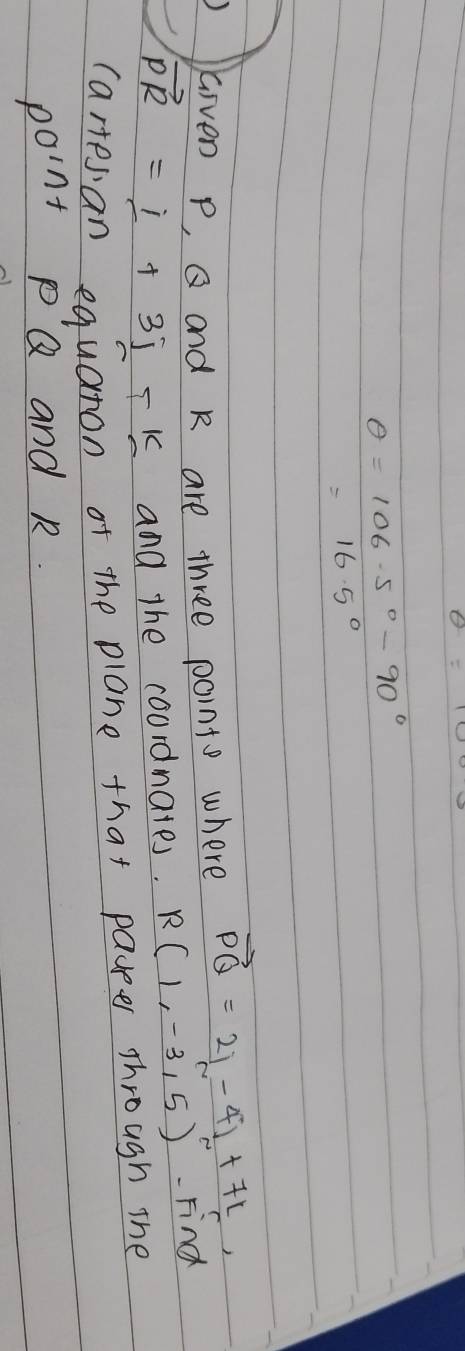 θ = 106.5° - 90°
= 16.5°
Given P, Q and R are three points where PQ = 2i - 4j + 7k,
PR = i + 3j - k and the coordinates. R(1, -3, 5). Find
Cartesian equation of the plane that passes through the
point P Q and R.